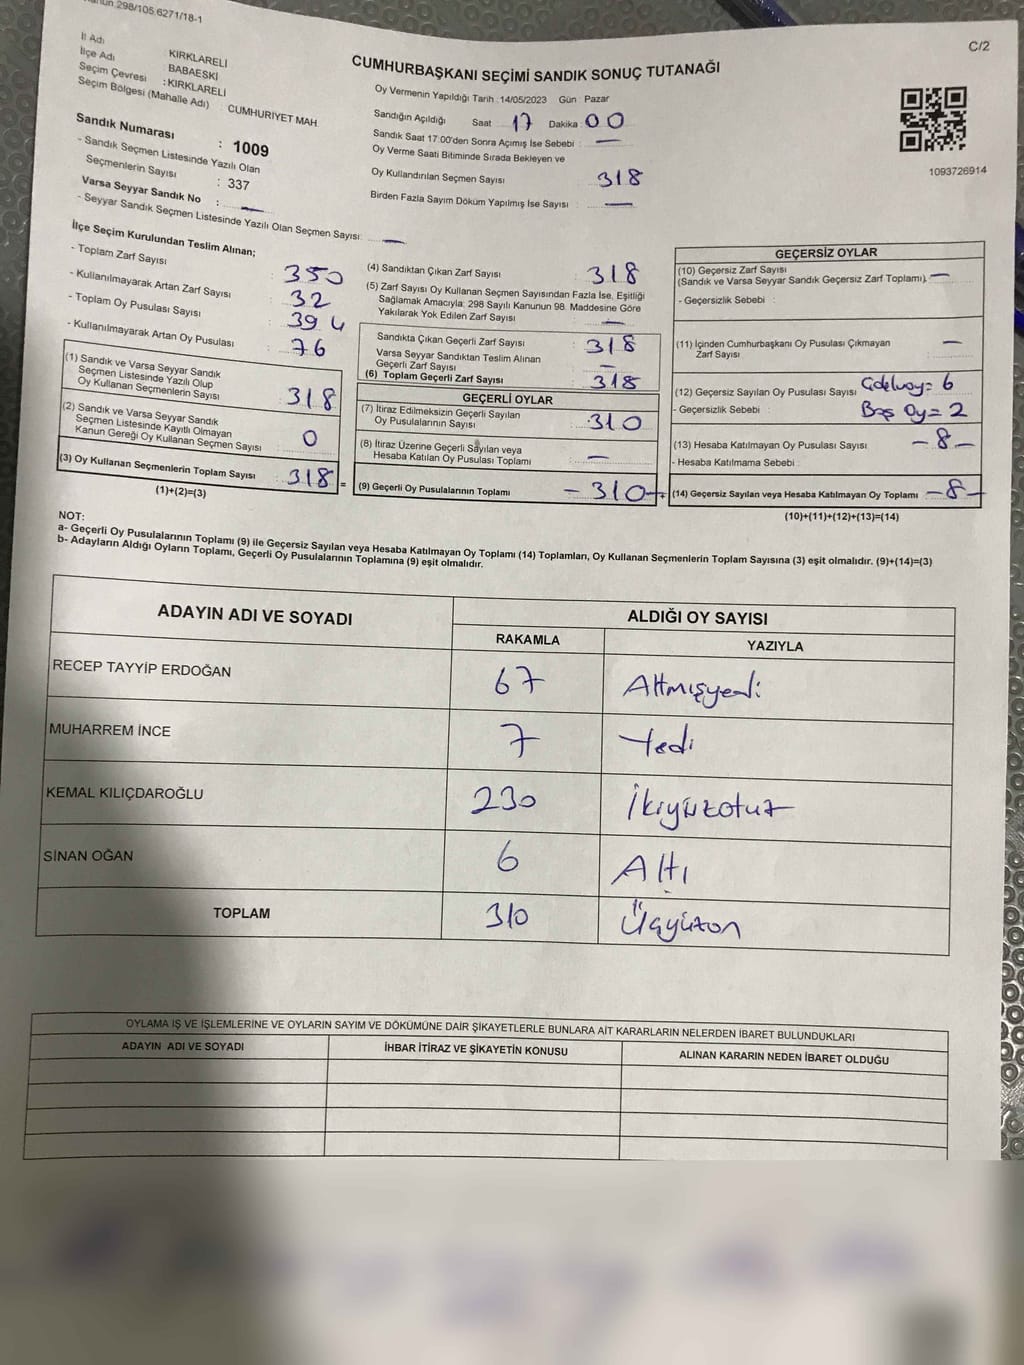 298/105.6271/18-1
C/2
İl Adı : KIRKLARELİ
İlçe Adı : BABAESKİ
Seçim Çevresi : KIRKLARELİ
Seçim Bölgesi (Mahalle Adı) : CUMHURİYET MAH.
CUMHURBAŞKANI SEÇİMİ SANDIK SONUÇ TUTANAĞI
Oy Vermenin Yapıldığı Tarih : 14/05/2023 Gün : Pazar
Sandığın Açıldığı Saat : 17 Dakika : 00
Sandık Saat 17:00'den Sonra Açımış İse Sebebi : —
Oy Verme Saati Bitiminde Sırada Bekleyen ve
Oy Kullandırılan Seçmen Sayısı : 318
Birden Fazla Sayım Döküm Yapılmış İse Sayısı : —
1093726914
Sandık Numarası : 1009
- Sandık Seçmen Listesinde Yazılı Olan
Seçmenlerin Sayısı : 337
Varsa Seyyar Sandık No : —
- Seyyar Sandık Seçmen Listesinde Yazılı Olan Seçmen Sayısı : —
İlçe Seçim Kurulundan Teslim Alınan;
- Toplam Zarf Sayısı : 350
- Kullanılmayarak Artan Zarf Sayısı : 32
- Toplam Oy Pusulası Sayısı : 394
- Kullanılmayarak Artan Oy Pusulası : 76
(1) Sandık ve Varsa Seyyar Sandık
Seçmen Listesinde Yazılı Olup
Oy Kullanan Seçmenlerin Sayısı : 318
(2) Sandık ve Varsa Seyyar Sandık
Seçmen Listesinde Kayıtlı Olmayan
Kanun Gereği Oy Kullanan Seçmen Sayısı : 0
(3) Oy Kullanan Seçmenlerin Toplam Sayısı : 318 =
(1)+(2)=(3)
(4) Sandıktan Çıkan Zarf Sayısı : 318
(5) Zarf Sayısı Oy Kullanan Seçmen Sayısından Fazla İse, Eşitliği
Sağlamak Amacıyla; 298 Sayılı Kanunun 98. Maddesine Göre
Yakılarak Yok Edilen Zarf Sayısı : —
Sandıkta Çıkan Geçerli Zarf Sayısı : 318
Varsa Seyyar Sandıktan Teslim Alınan
Geçerli Zarf Sayısı : —
(6) Toplam Geçerli Zarf Sayısı : 318
GEÇERLİ OYLAR
(7) İtiraz Edilmeksizin Geçerli Sayılan
Oy Pusulalarının Sayısı : 310
(8) İtiraz Üzerine Geçerli Sayılan veya
Hesaba Katılan Oy Pusulası Toplamı : —
(9) Geçerli Oy Pusulalarının Toplamı – 310 – +
GEÇERSİZ OYLAR
(10) Geçersiz Zarf Sayısı
(Sandık ve Varsa Seyyar Sandık Geçersiz Zarf Toplamı) : —
- Geçersizlik Sebebi :
(11) İçinden Cumhurbaşkanı Oy Pusulası Çıkmayan
Zarf Sayısı : —
(12) Geçersiz Sayılan Oy Pusulası Sayısı : = 6
- Geçersizlik Sebebi : Boş Oy = 2
(13) Hesaba Katılmayan Oy Pusulası Sayısı – 8 –
- Hesaba Katılmama Sebebi :
(14) Geçersiz Sayılan veya Hesaba Katılmayan Oy Toplamı – 8 –
(10)+(11)+(12)+(13)=(14)
NOT:
a- Geçerli Oy Pusulalarının Toplamı (9) ile Geçersiz Sayılan veya Hesaba Katılmayan Oy Toplamı (14) Toplamları, Oy Kullanan Seçmenlerin Toplam Sayısına (3) eşit olmalıdır. (9)+(14)=(3)
b- Adayların Aldığı Oyların Toplamı, Geçerli Oy Pusulalarının Toplamına (9) eşit olmalıdır.
ADAYIN ADI VE SOYADI ALDIĞI OY SAYISI
RAKAMLA YAZIYLA
RECEP TAYYİP ERDOĞAN 67 Altmışyedi
MUHARREM İNCE 7 Yedi
KEMAL KILIÇDAROĞLU 230 İkiyüzotuz
SİNAN OĞAN 6 Altı
TOPLAM 310 Üçyüzon
OYLAMA İŞ VE İŞLEMLERİNE VE OYLARIN SAYIM VE DÖKÜMÜNE DAİR ŞİKAYETLERLE BUNLARA AİT KARARLARIN NELERDEN İBARET BULUNDUKLARI
ADAYIN ADI VE SOYADI İHBAR İTİRAZ VE ŞİKAYETİN KONUSU ALINAN KARARIN NEDEN İBARET OLDUĞU